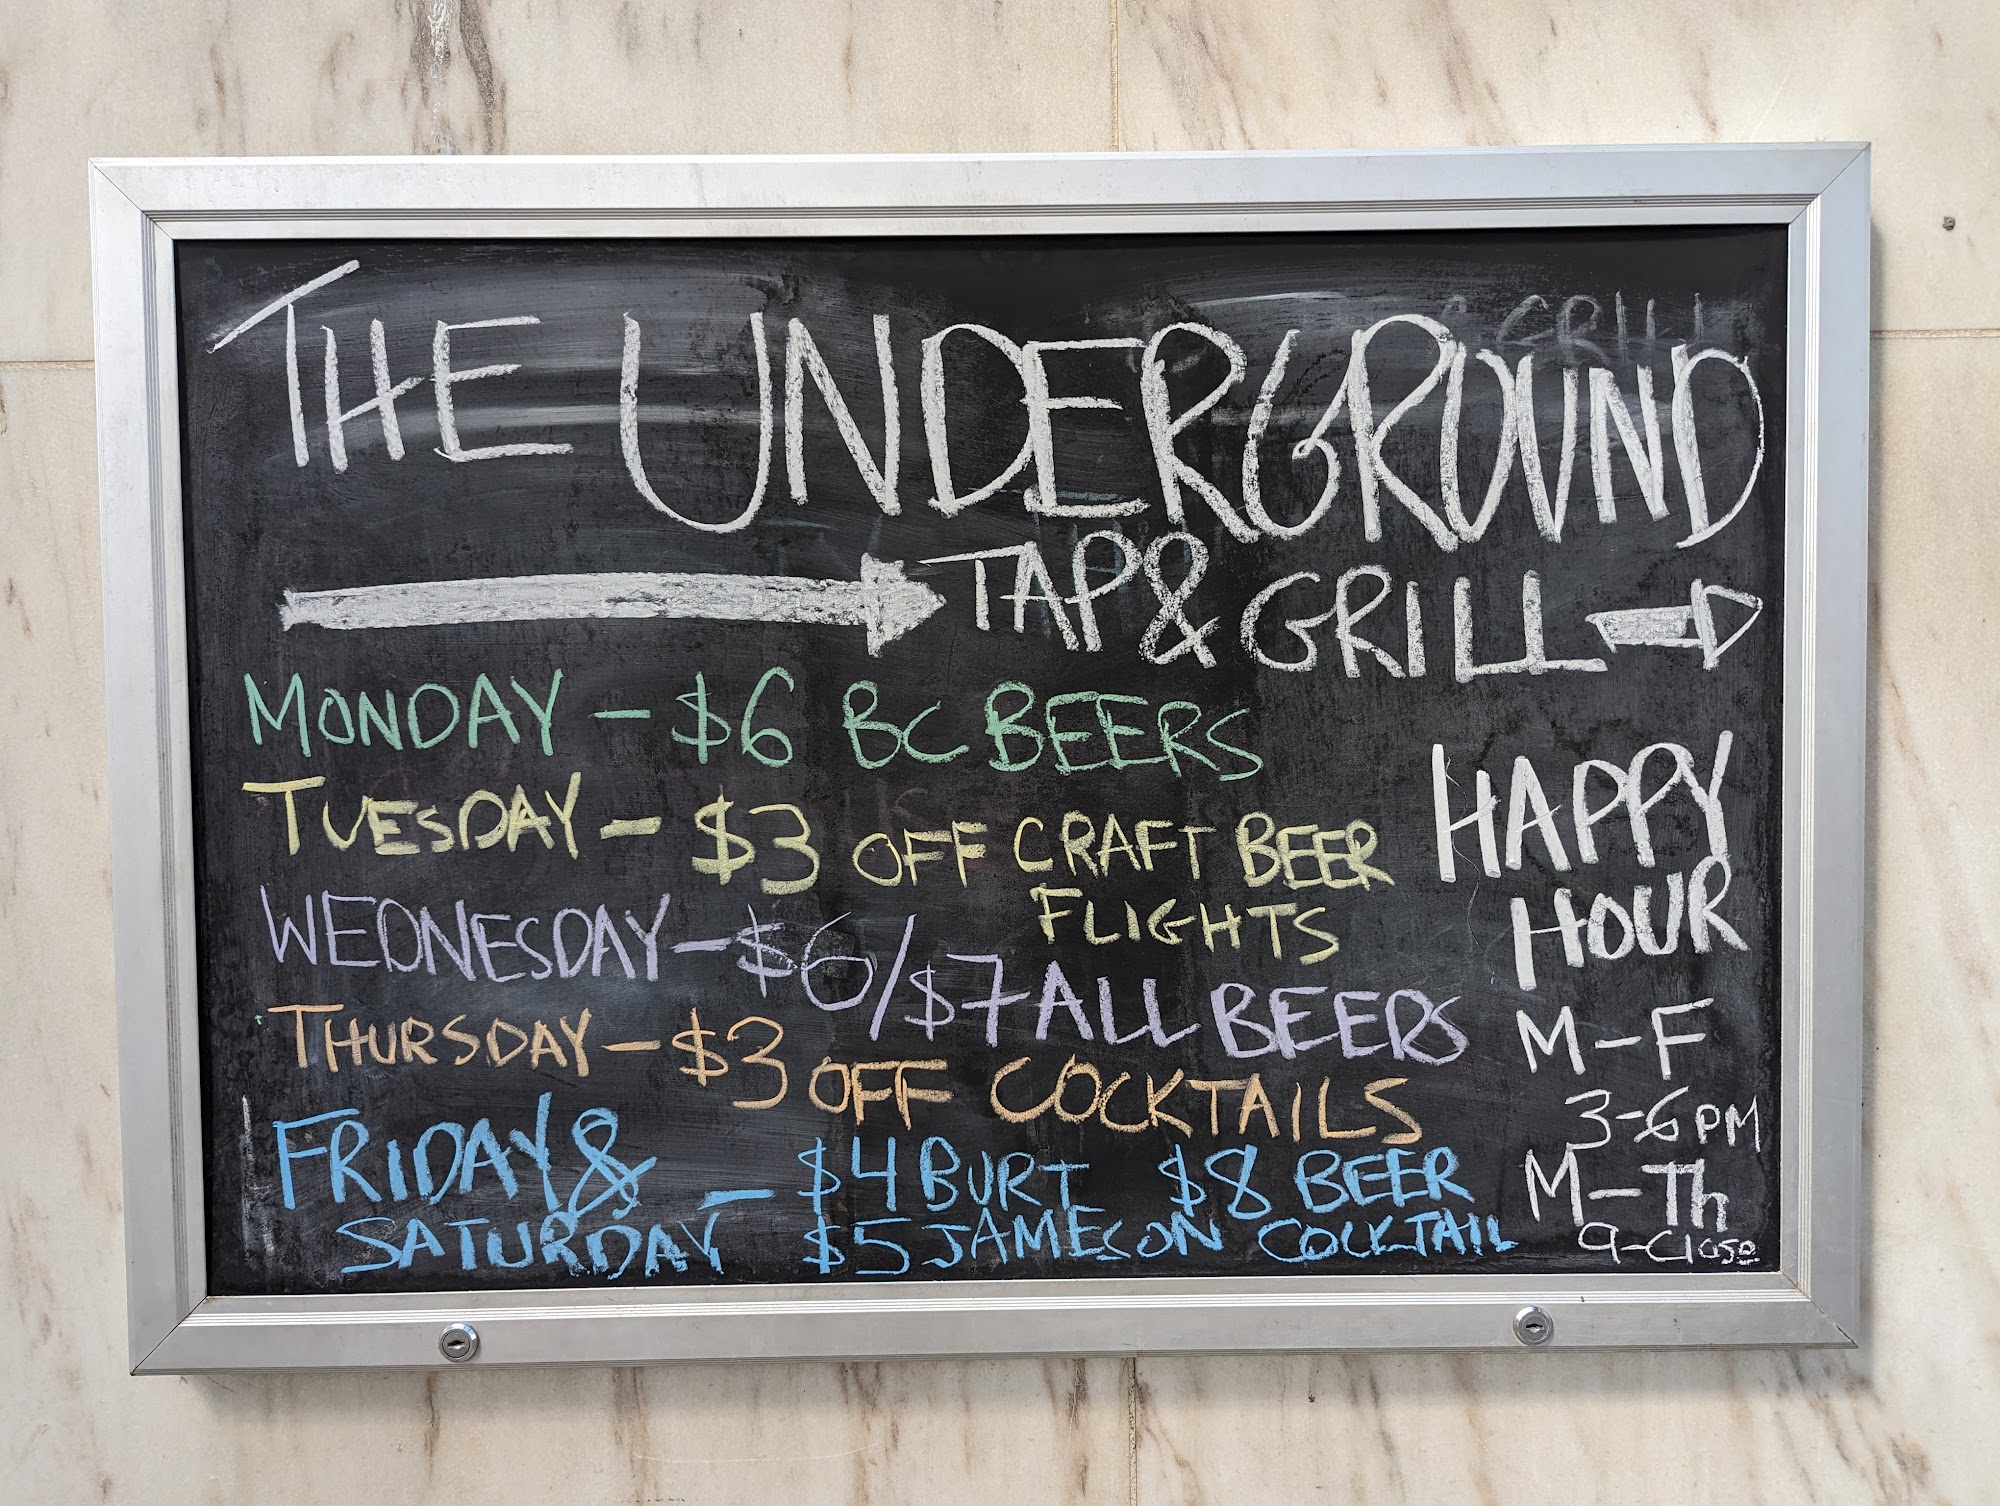 THE UNDERGROUND
TAP & GRILL
MONDAY - $6 BC BEERS
TUESDAY - $3 OFF CRAFT BEER
FLIGHTS
WEDNESDAY - $6/$7 ALL BEERS
THURSDAY - $3 OFF COCKTAILS
FRIDAY & SATURDAY - $4 BURT $8 BEER
$5 JAMESON COCKTAIL
HAPPY
HOUR
M-F
3-6PM
M-Th
9-Close
GRILL